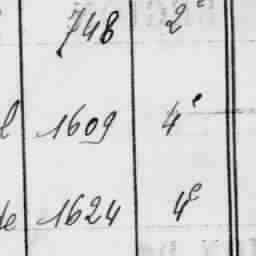 748 2e
1609 4e
de 1624 4e